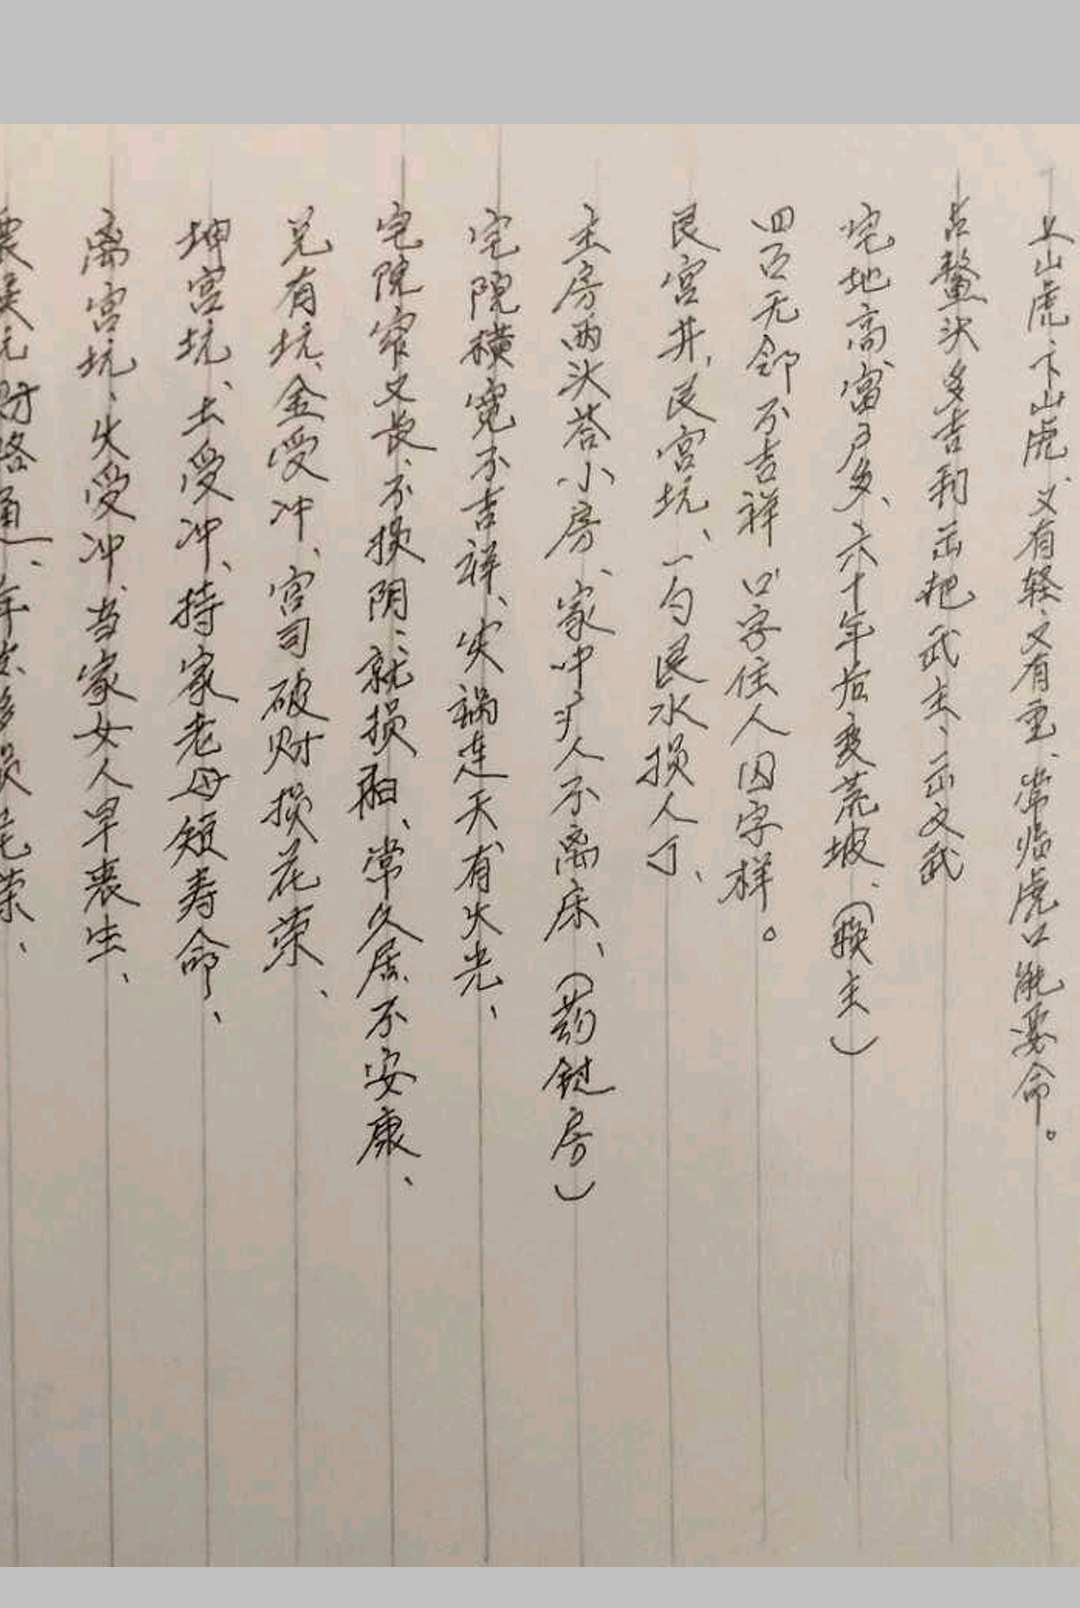 上山虎、下山虎、又有轻、又有重、常临虎口能要命。
占鳌头多吉利、出把武主、出文武
宅地高、富户多、六十年后变荒坡、(换主)
四下无邻不吉祥 口字住人囚字样。
艮宫井、艮宫坑、一勺艮水损人丁、
主房两头搭小房、家中 人不离床、(药 房)
宅院横宽不吉祥、灾祸连天有火光、
宅院窄又长、不损阴、就损阳、常久居不安康、
兑有坑、金受冲、官司破财损花荣、
坤宫坑、土受冲、持家老母短寿命、
离宫坑、火受冲、当家女人早丧生、
震 坑财路通、年 多损 荣、